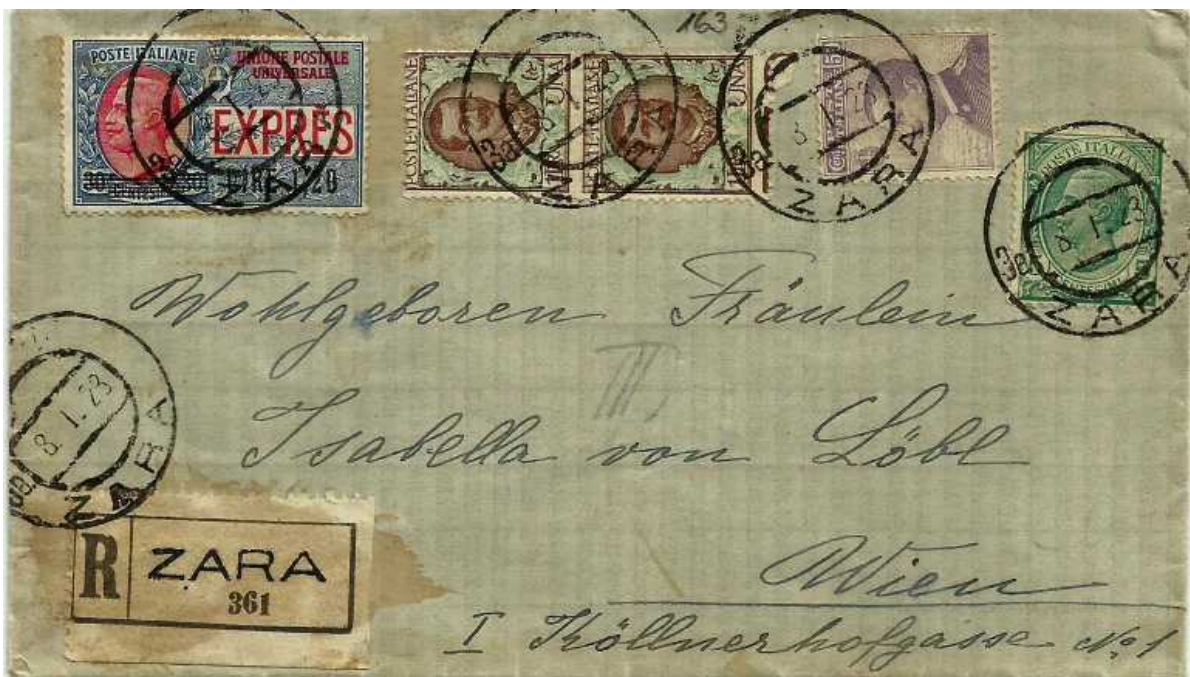 163
POSTE ITALIANE
UNIONE POSTALE
UNIVERSALE
EXPRÈS
LIRE 1,20
POSTE·ITALIANE
UNA
POSTE·ITALIANE
UNA
POSTE ITALIANE
ZARA
ZARA
ZARA
8.1.23
ZARA
8.1.23
ZARA
Wohlgeboren Fräulein
III,
Isabella von Löbl
Wien
I Köllnerhofgasse No. 1
R
ZARA
361